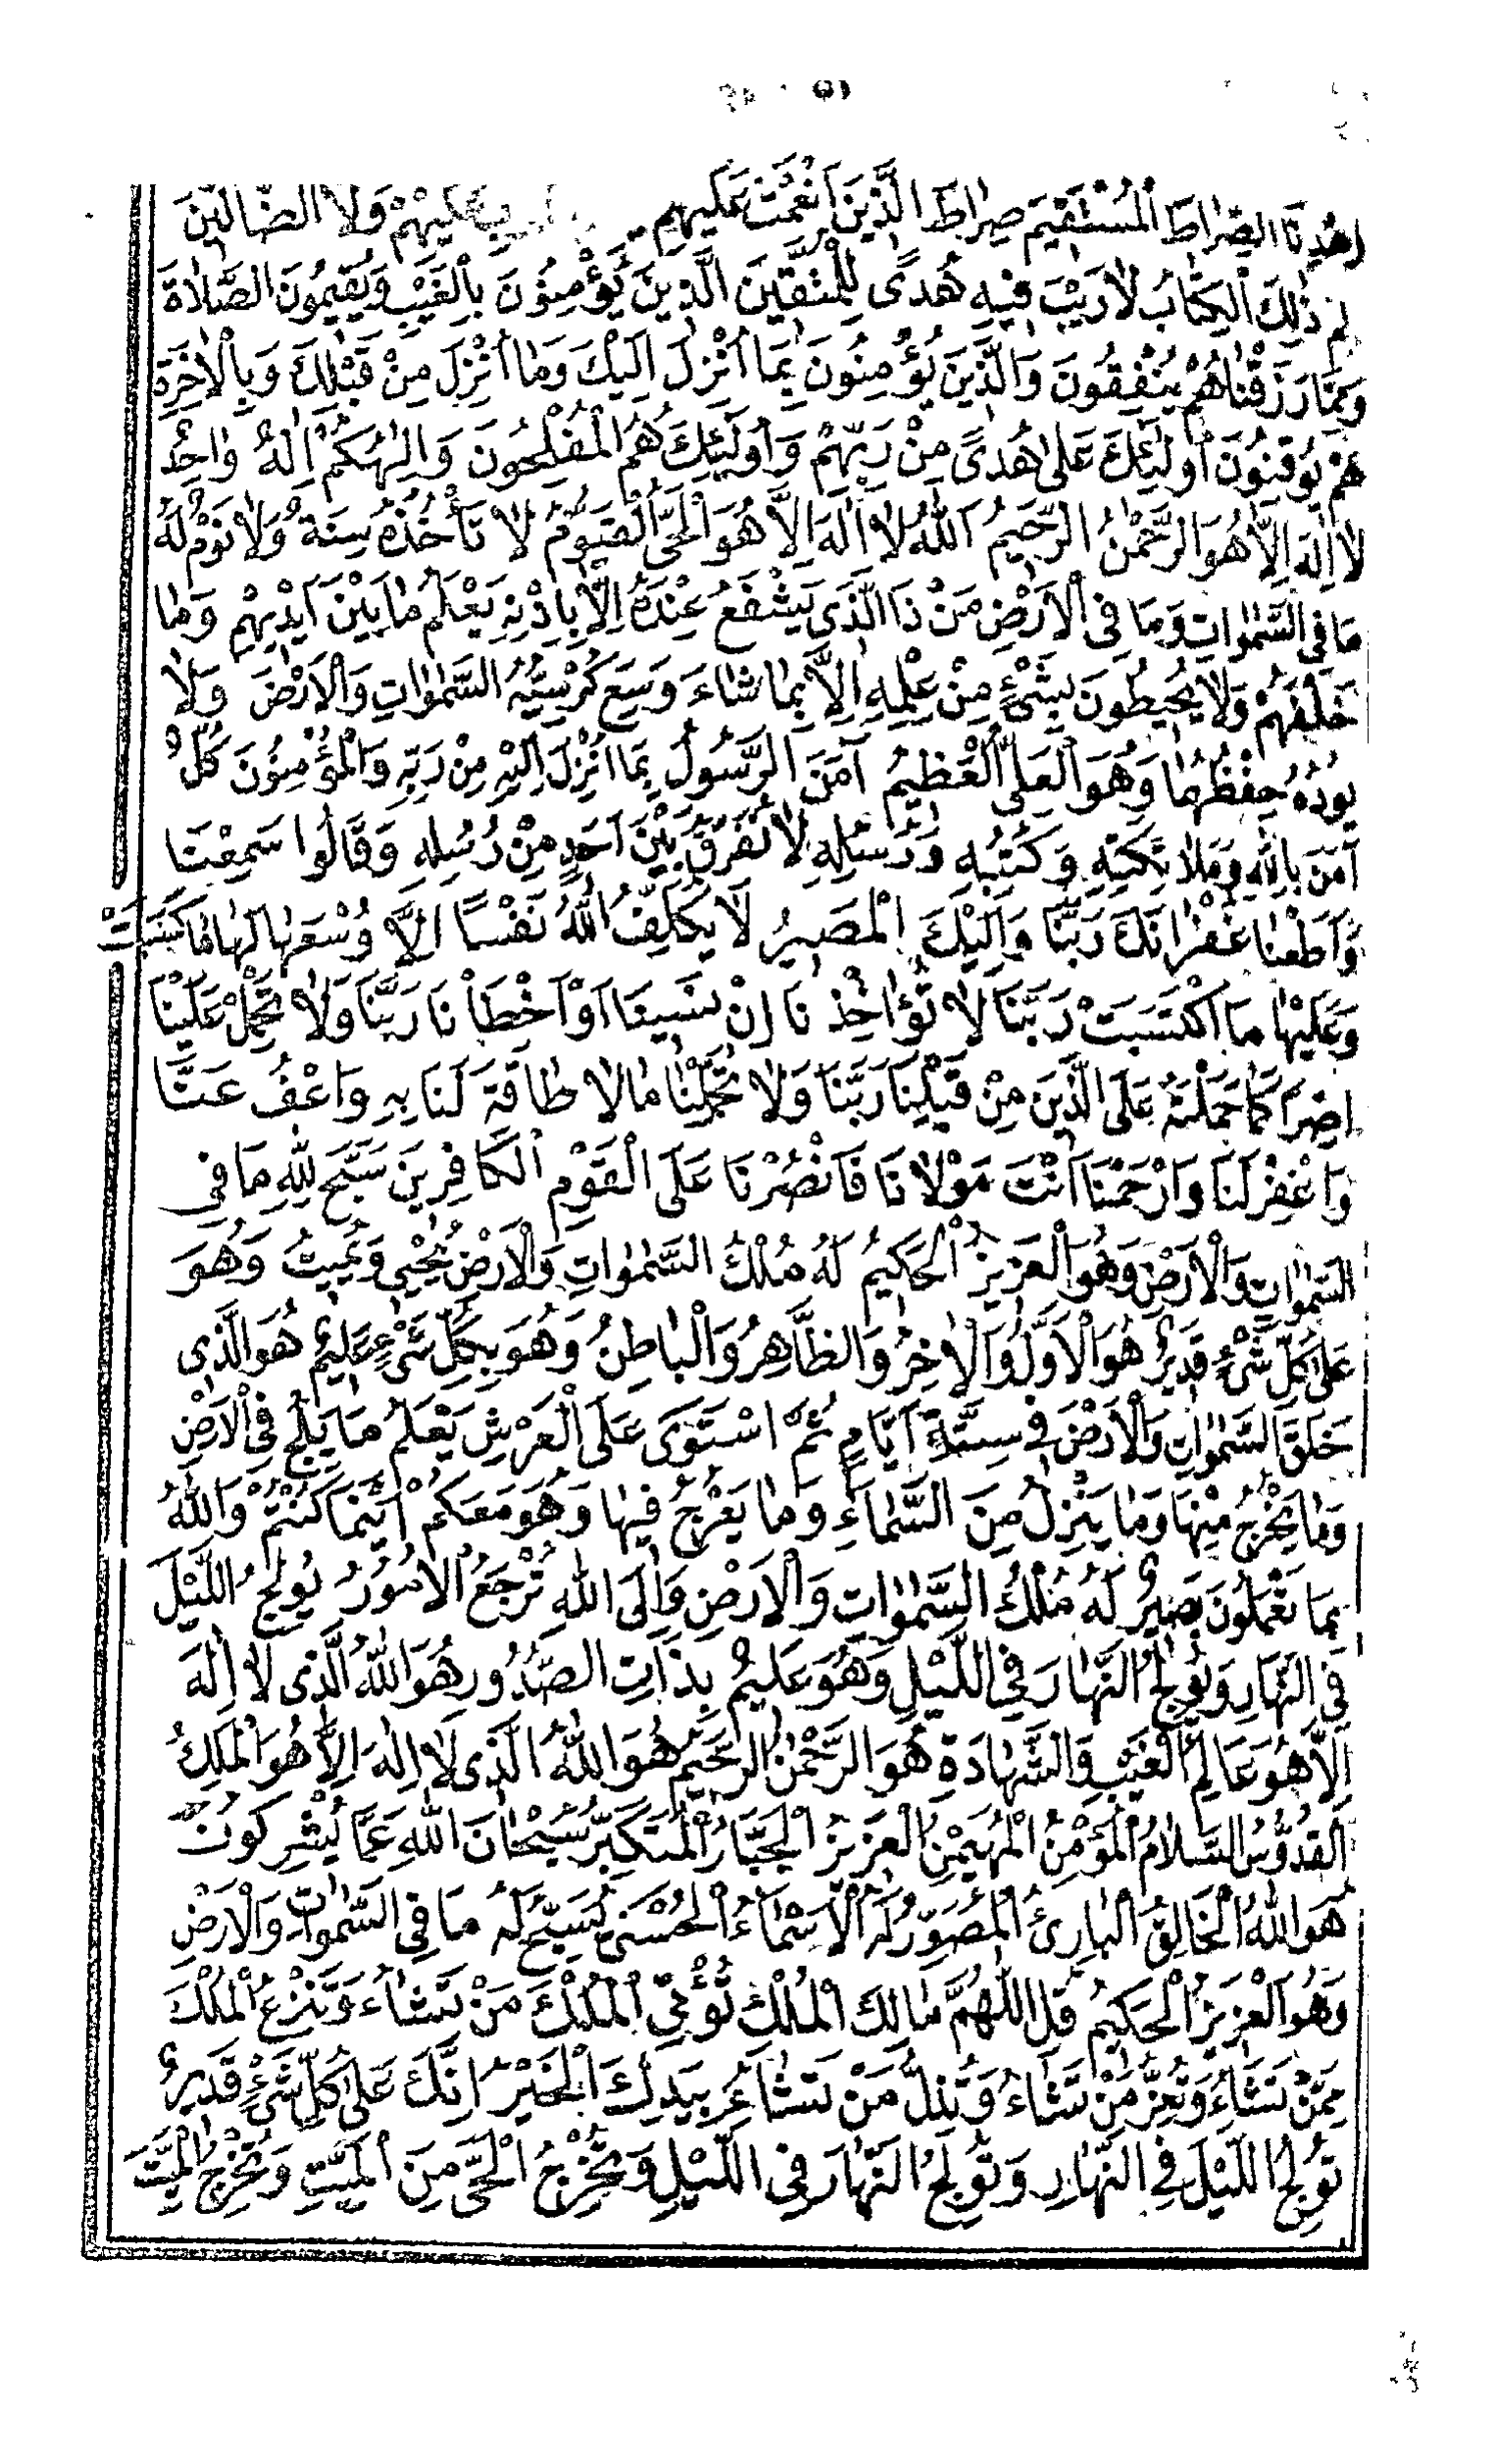 اِهْدِنَا الصِّرَاطَ الْمُسْتَقِيمَ صِرَاطَ الَّذِينَ اَنْعَمْتَ عَلَيْهِمْ عَلَيْهِمْ وَلَا الضَّالِّينَ
الم ذٰلِكَ الْكِتَابُ لَا رَيْبَ فِيهِ هُدًى لِلْمُتَّقِينَ الَّذِينَ يُؤْمِنُونَ بِالْغَيْبِ وَيُقِيمُونَ الصَّلَاةَ
وَمِمَّا رَزَقْنَاهُمْ يُنْفِقُونَ وَالَّذِينَ يُؤْمِنُونَ بِمَا اُنْزِلَ اِلَيْكَ وَمَا اُنْزِلَ مِنْ قَبْلِكَ وَبِالْاٰخِرَةِ
هُمْ يُوقِنُونَ اُولٰئِكَ عَلٰى هُدًى مِنْ رَبِّهِمْ وَاُولٰئِكَ هُمُ الْمُفْلِحُونَ وَاِلٰهُكُمْ اِلٰهٌ وَاحِدٌ
لَا اِلٰهَ اِلَّا هُوَ الرَّحْمٰنُ الرَّحِيمُ اَللّٰهُ لَا اِلٰهَ اِلَّا هُوَ الْحَيُّ الْقَيُّومُ لَا تَأْخُذُهُ سِنَةٌ وَلَا نَوْمٌ لَهُ
مَا فِي السَّمٰوَاتِ وَمَا فِي الْاَرْضِ مَنْ ذَا الَّذِي يَشْفَعُ عِنْدَهُ اِلَّا بِاِذْنِهِ يَعْلَمُ مَا بَيْنَ اَيْدِيهِمْ وَمَا
خَلْفَهُمْ وَلَا يُحِيطُونَ بِشَيْءٍ مِنْ عِلْمِهِ اِلَّا بِمَا شَاءَ وَسِعَ كُرْسِيُّهُ السَّمٰوَاتِ وَالْاَرْضَ وَلَا
يَؤُدُهُ حِفْظُهُمَا وَهُوَ الْعَلِيُّ الْعَظِيمُ آمَنَ الرَّسُولُ بِمَا اُنْزِلَ اِلَيْهِ مِنْ رَبِّهِ وَالْمُؤْمِنُونَ كُلٌّ
آمَنَ بِاللّٰهِ وَمَلَائِكَتِهِ وَكُتُبِهِ وَرُسُلِهِ لَا نُفَرِّقُ بَيْنَ اَحَدٍ مِنْ رُسُلِهِ وَقَالُوا سَمِعْنَا
وَاَطَعْنَا غُفْرَانَكَ رَبَّنَا وَاِلَيْكَ الْمَصِيرُ لَا يُكَلِّفُ اللّٰهُ نَفْسًا اِلَّا وُسْعَهَا لَهَا مَا كَسَبَتْ
وَعَلَيْهَا مَا اكْتَسَبَتْ رَبَّنَا لَا تُؤَاخِذْنَا اِنْ نَسِينَا اَوْ اَخْطَأْنَا رَبَّنَا وَلَا تَحْمِلْ عَلَيْنَا
اِصْرًا كَمَا حَمَلْتَهُ عَلَى الَّذِينَ مِنْ قَبْلِنَا رَبَّنَا وَلَا تُحَمِّلْنَا مَا لَا طَاقَةَ لَنَا بِهِ وَاعْفُ عَنَّا
وَاغْفِرْ لَنَا وَارْحَمْنَا اَنْتَ مَوْلَانَا فَانْصُرْنَا عَلَى الْقَوْمِ الْكَافِرِينَ سَبَّحَ لِلّٰهِ مَا فِي
السَّمٰوَاتِ وَالْاَرْضِ وَهُوَ الْعَزِيزُ الْحَكِيمُ لَهُ مُلْكُ السَّمٰوَاتِ وَالْاَرْضِ يُحْيِي وَيُمِيتُ وَهُوَ
عَلٰى كُلِّ شَيْءٍ قَدِيرٌ هُوَ الْاَوَّلُ وَالْاٰخِرُ وَالظَّاهِرُ وَالْبَاطِنُ وَهُوَ بِكُلِّ شَيْءٍ عَلِيمٌ هُوَ الَّذِي
خَلَقَ السَّمٰوَاتِ وَالْاَرْضَ فِي سِتَّةِ اَيَّامٍ ثُمَّ اسْتَوٰى عَلَى الْعَرْشِ يَعْلَمُ مَا يَلِجُ فِي الْاَرْضِ
وَمَا يَخْرُجُ مِنْهَا وَمَا يَنْزِلُ مِنَ السَّمَاءِ وَمَا يَعْرُجُ فِيهَا وَهُوَ مَعَكُمْ اَيْنَمَا كُنْتُمْ وَاللّٰهُ
بِمَا تَعْمَلُونَ بَصِيرٌ لَهُ مُلْكُ السَّمٰوَاتِ وَالْاَرْضِ وَاِلَى اللّٰهِ تُرْجَعُ الْاُمُورُ يُولِجُ اللَّيْلَ
فِي النَّهَارِ وَيُولِجُ النَّهَارَ فِي اللَّيْلِ وَهُوَ عَلِيمٌ بِذَاتِ الصُّدُورِ هُوَ اللّٰهُ الَّذِي لَا اِلٰهَ
اِلَّا هُوَ عَالِمُ الْغَيْبِ وَالشَّهَادَةِ هُوَ الرَّحْمٰنُ الرَّحِيمُ هُوَ اللّٰهُ الَّذِي لَا اِلٰهَ اِلَّا هُوَ الْمَلِكُ
الْقُدُّوسُ السَّلَامُ الْمُؤْمِنُ الْمُهَيْمِنُ الْعَزِيزُ الْجَبَّارُ الْمُتَكَبِّرُ سُبْحَانَ اللّٰهِ عَمَّا يُشْرِكُونَ
هُوَ اللّٰهُ الْخَالِقُ الْبَارِئُ الْمُصَوِّرُ لَهُ الْاَسْمَاءُ الْحُسْنٰى يُسَبِّحُ لَهُ مَا فِي السَّمٰوَاتِ وَالْاَرْضِ
وَهُوَ الْعَزِيزُ الْحَكِيمُ قُلِ اللّٰهُمَّ مَالِكَ الْمُلْكِ تُؤْتِي الْمُلْكَ مَنْ تَشَاءُ وَتَنْزِعُ الْمُلْكَ
مِمَّنْ تَشَاءُ وَتُعِزُّ مَنْ تَشَاءُ وَتُذِلُّ مَنْ تَشَاءُ بِيَدِكَ الْخَيْرُ اِنَّكَ عَلٰى كُلِّ شَيْءٍ قَدِيرٌ
تُولِجُ اللَّيْلَ فِي النَّهَارِ وَتُولِجُ النَّهَارَ فِي اللَّيْلِ وَتُخْرِجُ الْحَيَّ مِنَ الْمَيِّتِ وَتُخْرِجُ الْمَيِّتَ